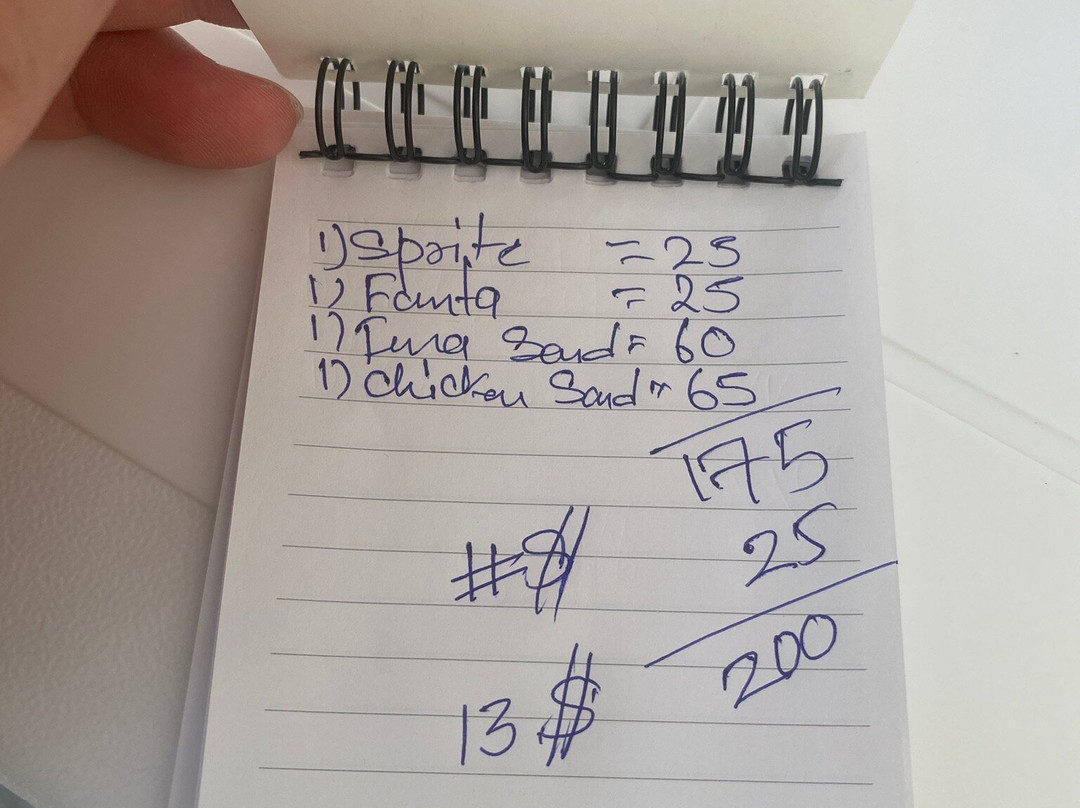 1) Sprite = 25
1) Fanta = 25
1) Tuna Sand = 60
1) Chicken Sand = 65
175
25
200
13 $